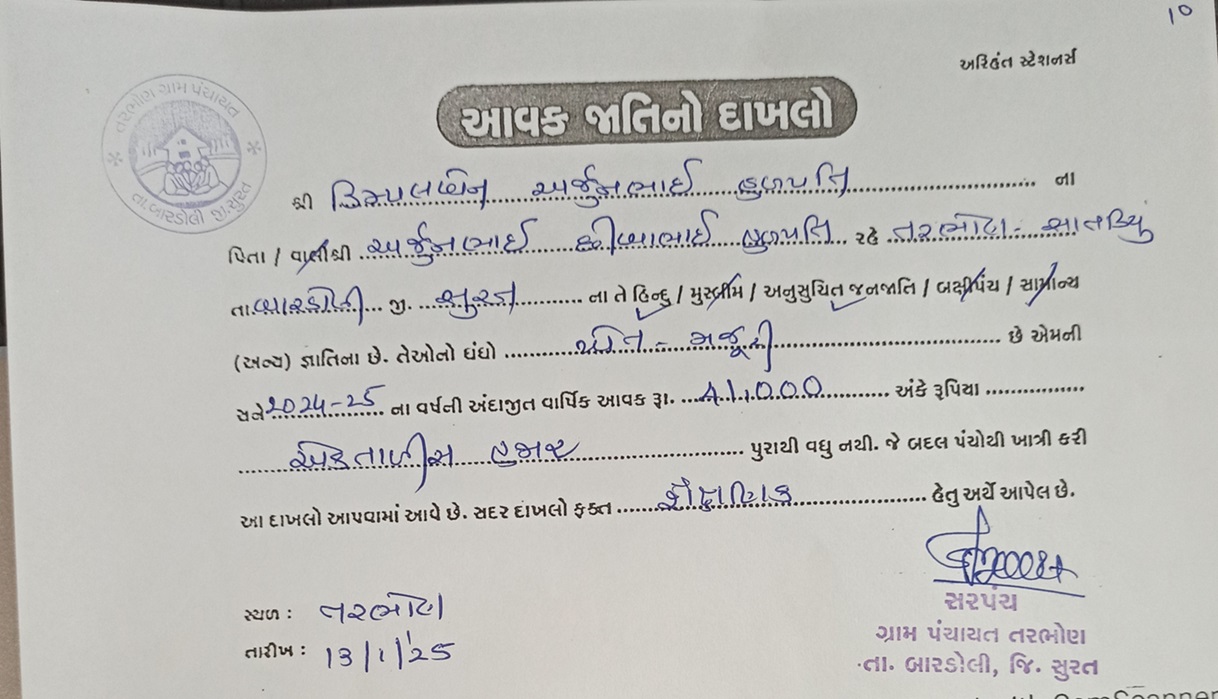 10
અરિહંત સ્ટેશનર્સ
તરભોણ ગ્રામ પંચાયત
તા.બારડોલી જી.સુરત
આવક જાતિનો દાખલો
શ્રી ડિમ્પલબેન અર્જુનભાઈ હળપતિ ના
પિતા / વાલીશ્રી અર્જુનભાઈ હળપતિ રહે તરભોણ - સાતવિયુ
તા. બારડોલી જી. સુરત ના તે હિન્દુ / મુસ્લીમ / અનુસુચિત જનજાતિ / બક્ષીપંચ / સામાન્ય
(અન્ય) જ્ઞાતિના છે. તેઓનો ધંધો ખેત - મજૂરી છે એમની
સને 2024-25 ના વર્ષની અંદાજીત વાર્ષિક આવક રૂા. 41,000 અંકે રૂપિયા
એકતાળીસ હજાર પુરાથી વધુ નથી. જે બદલ પંચોથી ખાત્રી કરી
આ દાખલો આપવામાં આવે છે. સદર દાખલો ફક્ત શૈક્ષણિક હેતુ અર્થે આપેલ છે.
સ્થળ : તરભોણ
તારીખ : 13/1/25
સરપંચ
ગ્રામ પંચાયત તરભોણ
તા. બારડોલી, જિ. સુરત